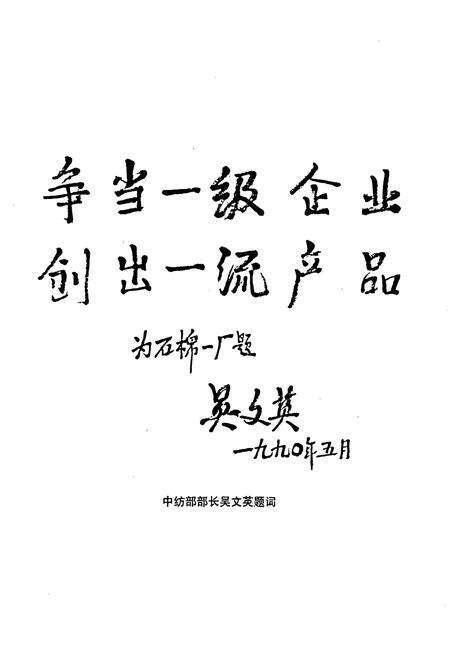 争当一级企业
创出一流产品
为石棉一厂题
吴文英
一九九〇年五月
中纺部部长吴文英题词